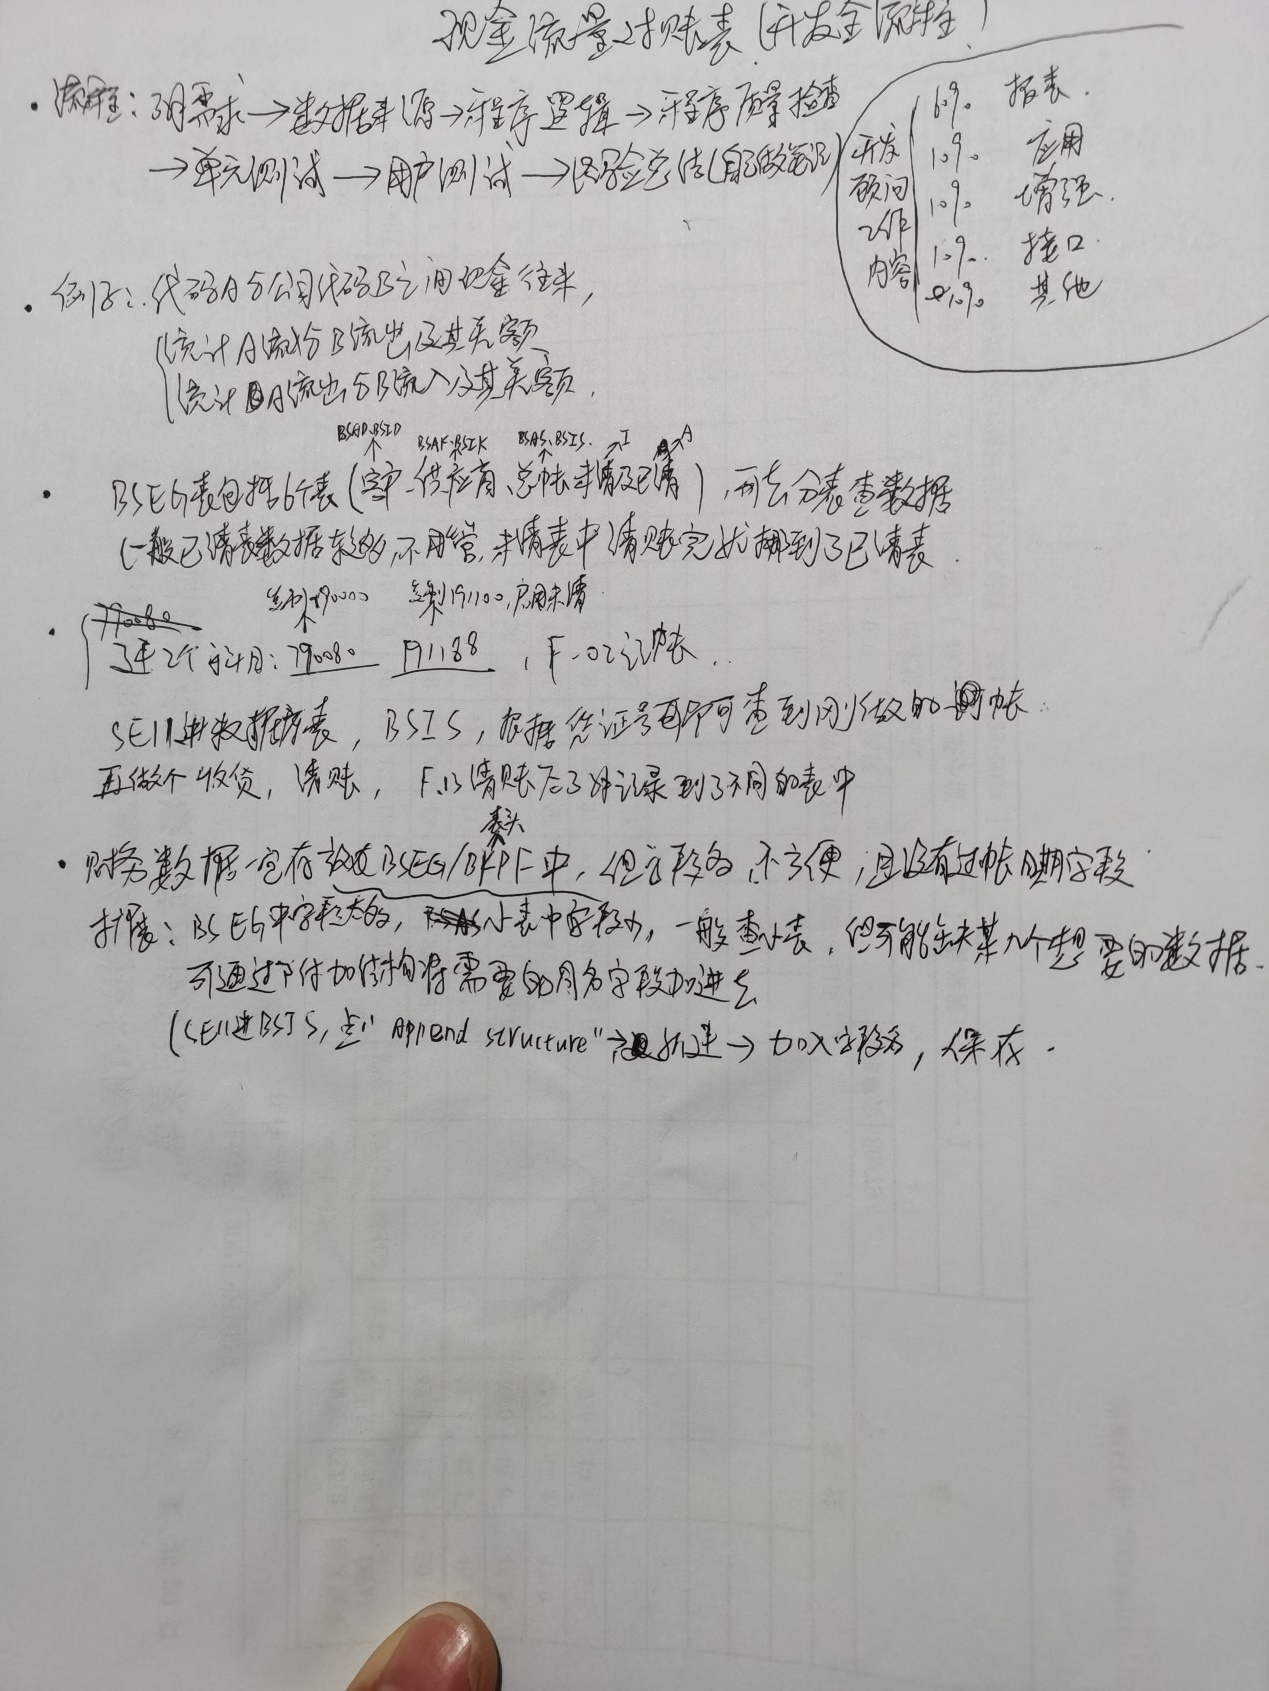 现金流量对账表(开发全流程)
· 流程:明确需求→数据来源→程序逻辑→程序质量检查
→单元测试→用户测试→经验总结(自己做笔记)
开发顾问工作内容
60% 报表.
10% 应用
10% 增强.
10%. 接口.
10% 其他
· 例子:代码A与公司代码B之间现金往来,
统计A流入与B流出及其差额
统计A流出与B流入及其差额.
BSAD、BSID BSAK、BSIK BSAS、BSIS. I A
· BSEG表包括6个表(客户、供应商、总帐未清及已清),可去分表查数据
(一般已清表数据较多,不用管,未清表中清账完就挪到了已清表.
790080
190000 191100,启用未清
· 建2个科目:790080 191188,F-02记帐..
SE11进数据库表,BSIS,根据凭证号即可查到刚做的帐.
再做个收货,清账,F.13清账后了解记录到了不同的表中
表头
· 财务数据一定存放在BSEG/BKPF中,但字段多,不方便,且没有过帐日期字段
扩展:BSEG中字段大的,小表中字段少,一般查小表,但可能缺失某几个想要的数据.
可通过附加结构将需要的字段加进去
(SE11进BSIS,点"Append structure"→新建→加入字段名,保存.